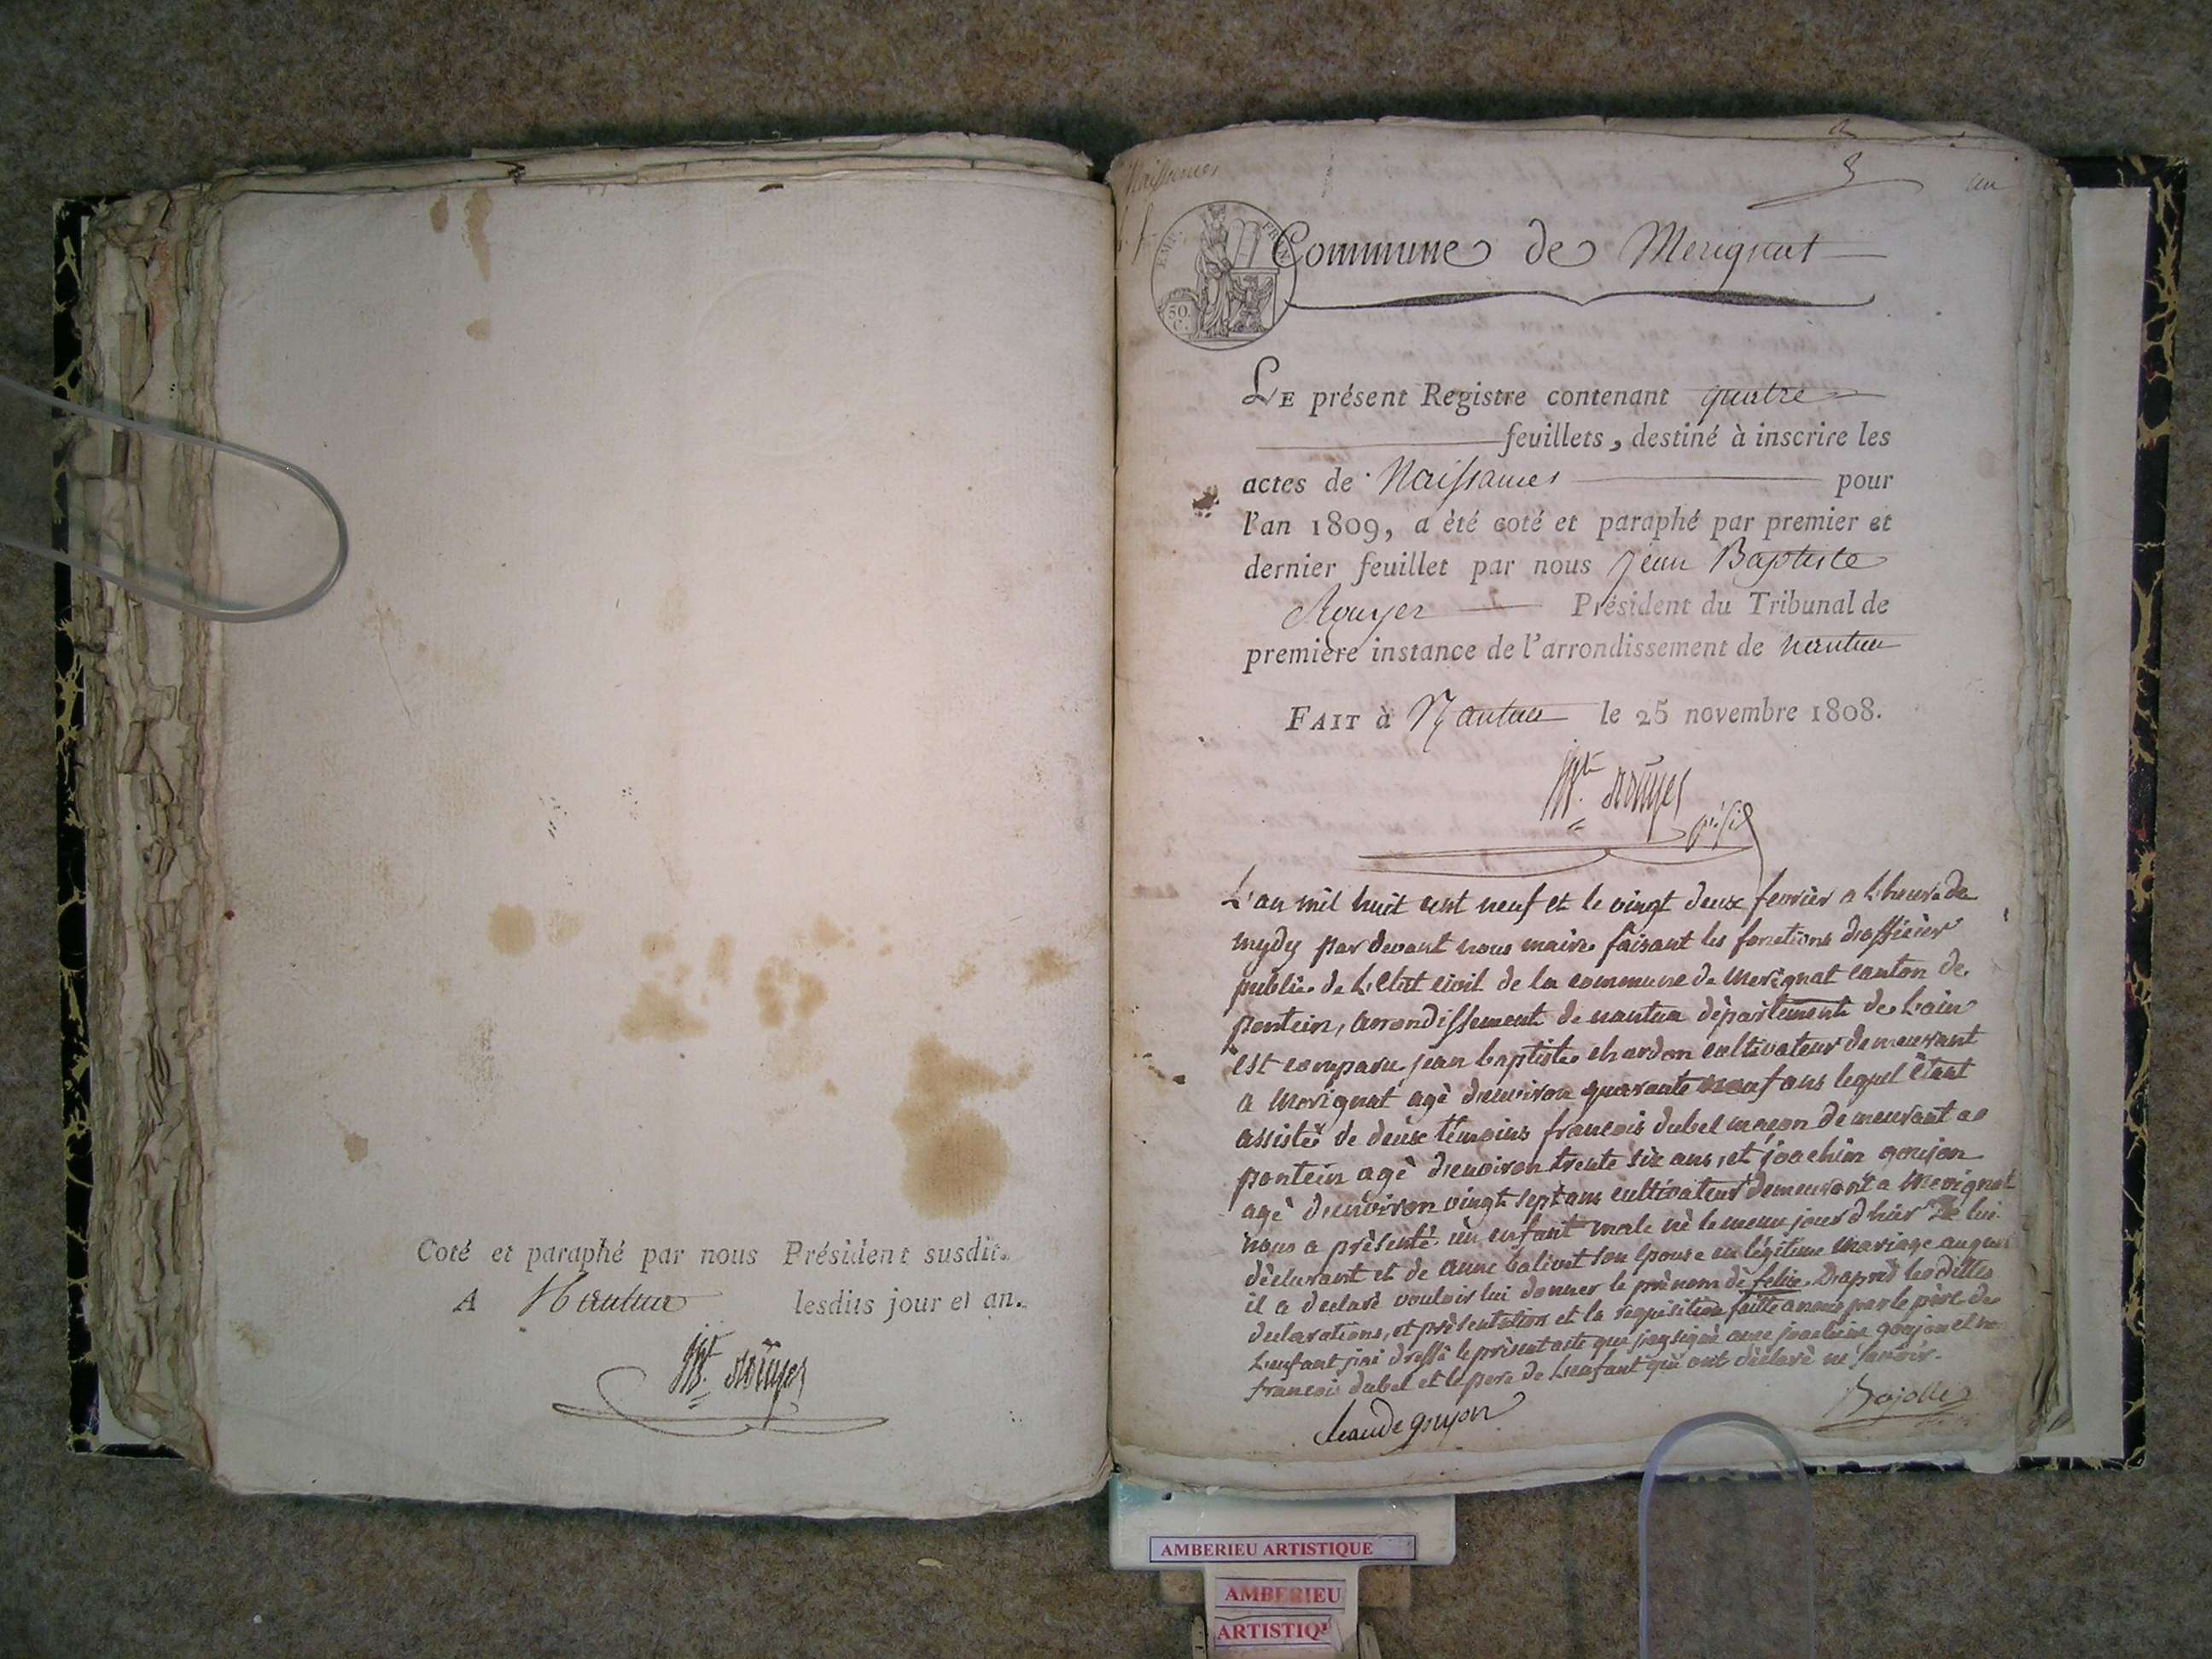 Coté et paraphé par nous Président susdit.
A Nantua lesdits jour et an.
Bte. Roüyer
Naissances
un
EMP. FRAN
50.
C.
Commune de Merignat
LE présent Registre contenant quatre
feuillets, destiné à inscrire les
actes de Naissances pour
l'an 1809, a été coté et paraphé par premier et
dernier feuillet par nous Jean Baptiste
Rouyer Président du Tribunal de
première instance de l'arrondissement de nantua
FAIT à Nantua le 25 novembre 1808.
Bte. Roüyer
présid
L'an mil huit cent neuf et le vingt deux fevrier a Lheure de
mydy par devant nous maire faisant les fonctions d'officier
public de L'Etat civil de la commune de Merignat canton de
pontein, arrondissement de nantua département de Lain
est comparu jean baptiste chardon cultivateur demeurant
a Merignat agè d'environ quarante neuf ans lequel ètant
assistè de deux tèmoins francois dubel maçon demeurant a
pontein agè d'environ trente six ans, et joachim goujon
agè d'environ vingt sept ans cultivateur demeurant a Merignat
nous a prèsentè un enfant male nè le meme jour d'huir de lui
dèclarant et de anne balivet son epouse en lègitime mariage auquel
il a declarè vouloir lui donner le prènom de felix. D'aprés les dittes
declarations, et prèsentation et la requisition faitte a nous par le père de
L'enfant j'ai dressè le prèsent acte que j'ay signè avec joachim goujon et non
francois dubel et le pere de L'enfant qui ont dèclarè ne savoir.
claude goujon
Bajolle
AMBERIEU ARTISTIQUE
AMBERIEU
ARTISTIQ